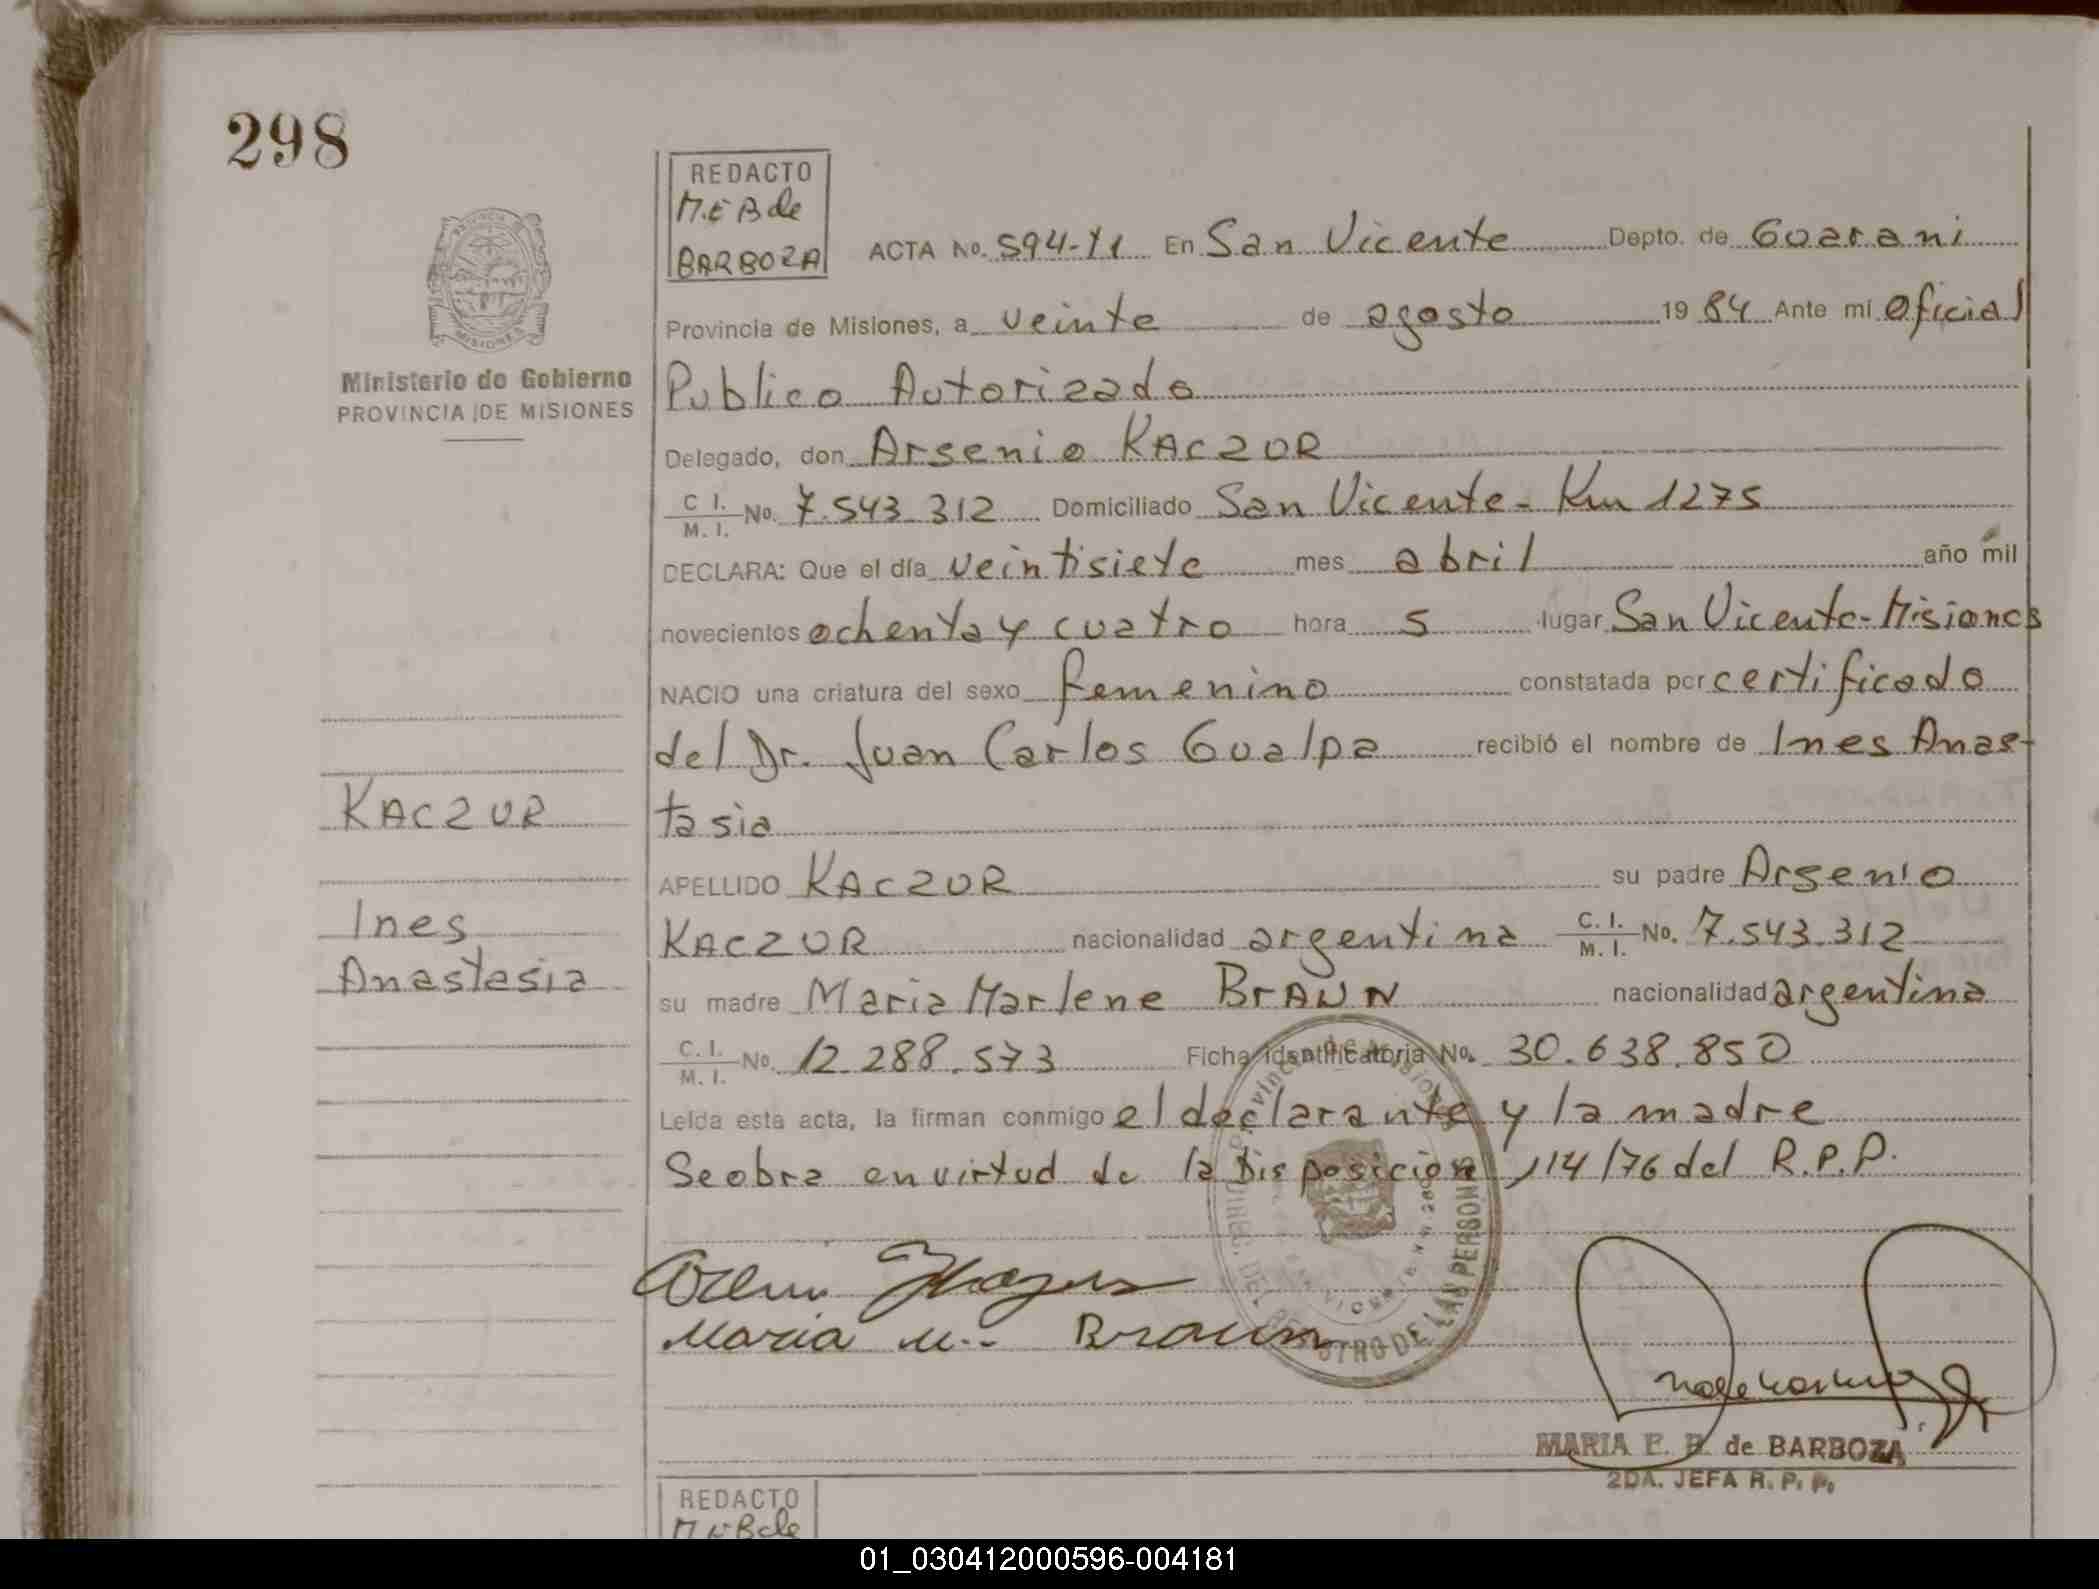 298
REDACTO
M.E B de
BARBOZA
ACTA No. 594-T1 En San Vicente Depto. de Guarani
Provincia de Misiones, a veinte de agosto 1984 Ante mi Oficial
Publico Autorizado
Delegado, don Arsenio KACZUR
C. I. / M. I. No. 7.543.312 Domiciliado San Vicente - Km 1275
DECLARA: Que el día veintisiete mes abril año mil
novecientos ochenta y cuatro hora 5 lugar San Vicente - Misiones
NACIO una criatura del sexo femenino constatada por certificado
del Dr. Juan Carlos Gualpa recibió el nombre de Ines Anas-
tasia
APELLIDO KACZUR su padre Arsenio
KACZUR nacionalidad argentina C. I. / M. I. No. 7.543.312
su madre Maria Marlene BrAUN nacionalidad argentina
C. I. / M. I. No. 12.288.573 Ficha Identificatoria No. 30.638.850
Leída esta acta, la firman conmigo el declarante y la madre
Se obra en virtud de la Disposicion 114/76 del R.P.P.
Maria M. Braun
MARIA E. B. de BARBOZA
2DA. JEFA R. P. P.
PROVINCIA DE MISIONES
Ministerio de Gobierno
PROVINCIA DE MISIONES
KACZUR
Ines
Anastasia
Provincia de Misiones
DIREC. DEL REGISTRO DE LAS PERSONAS
REDACTO
M E B de
01_030412000596-004181